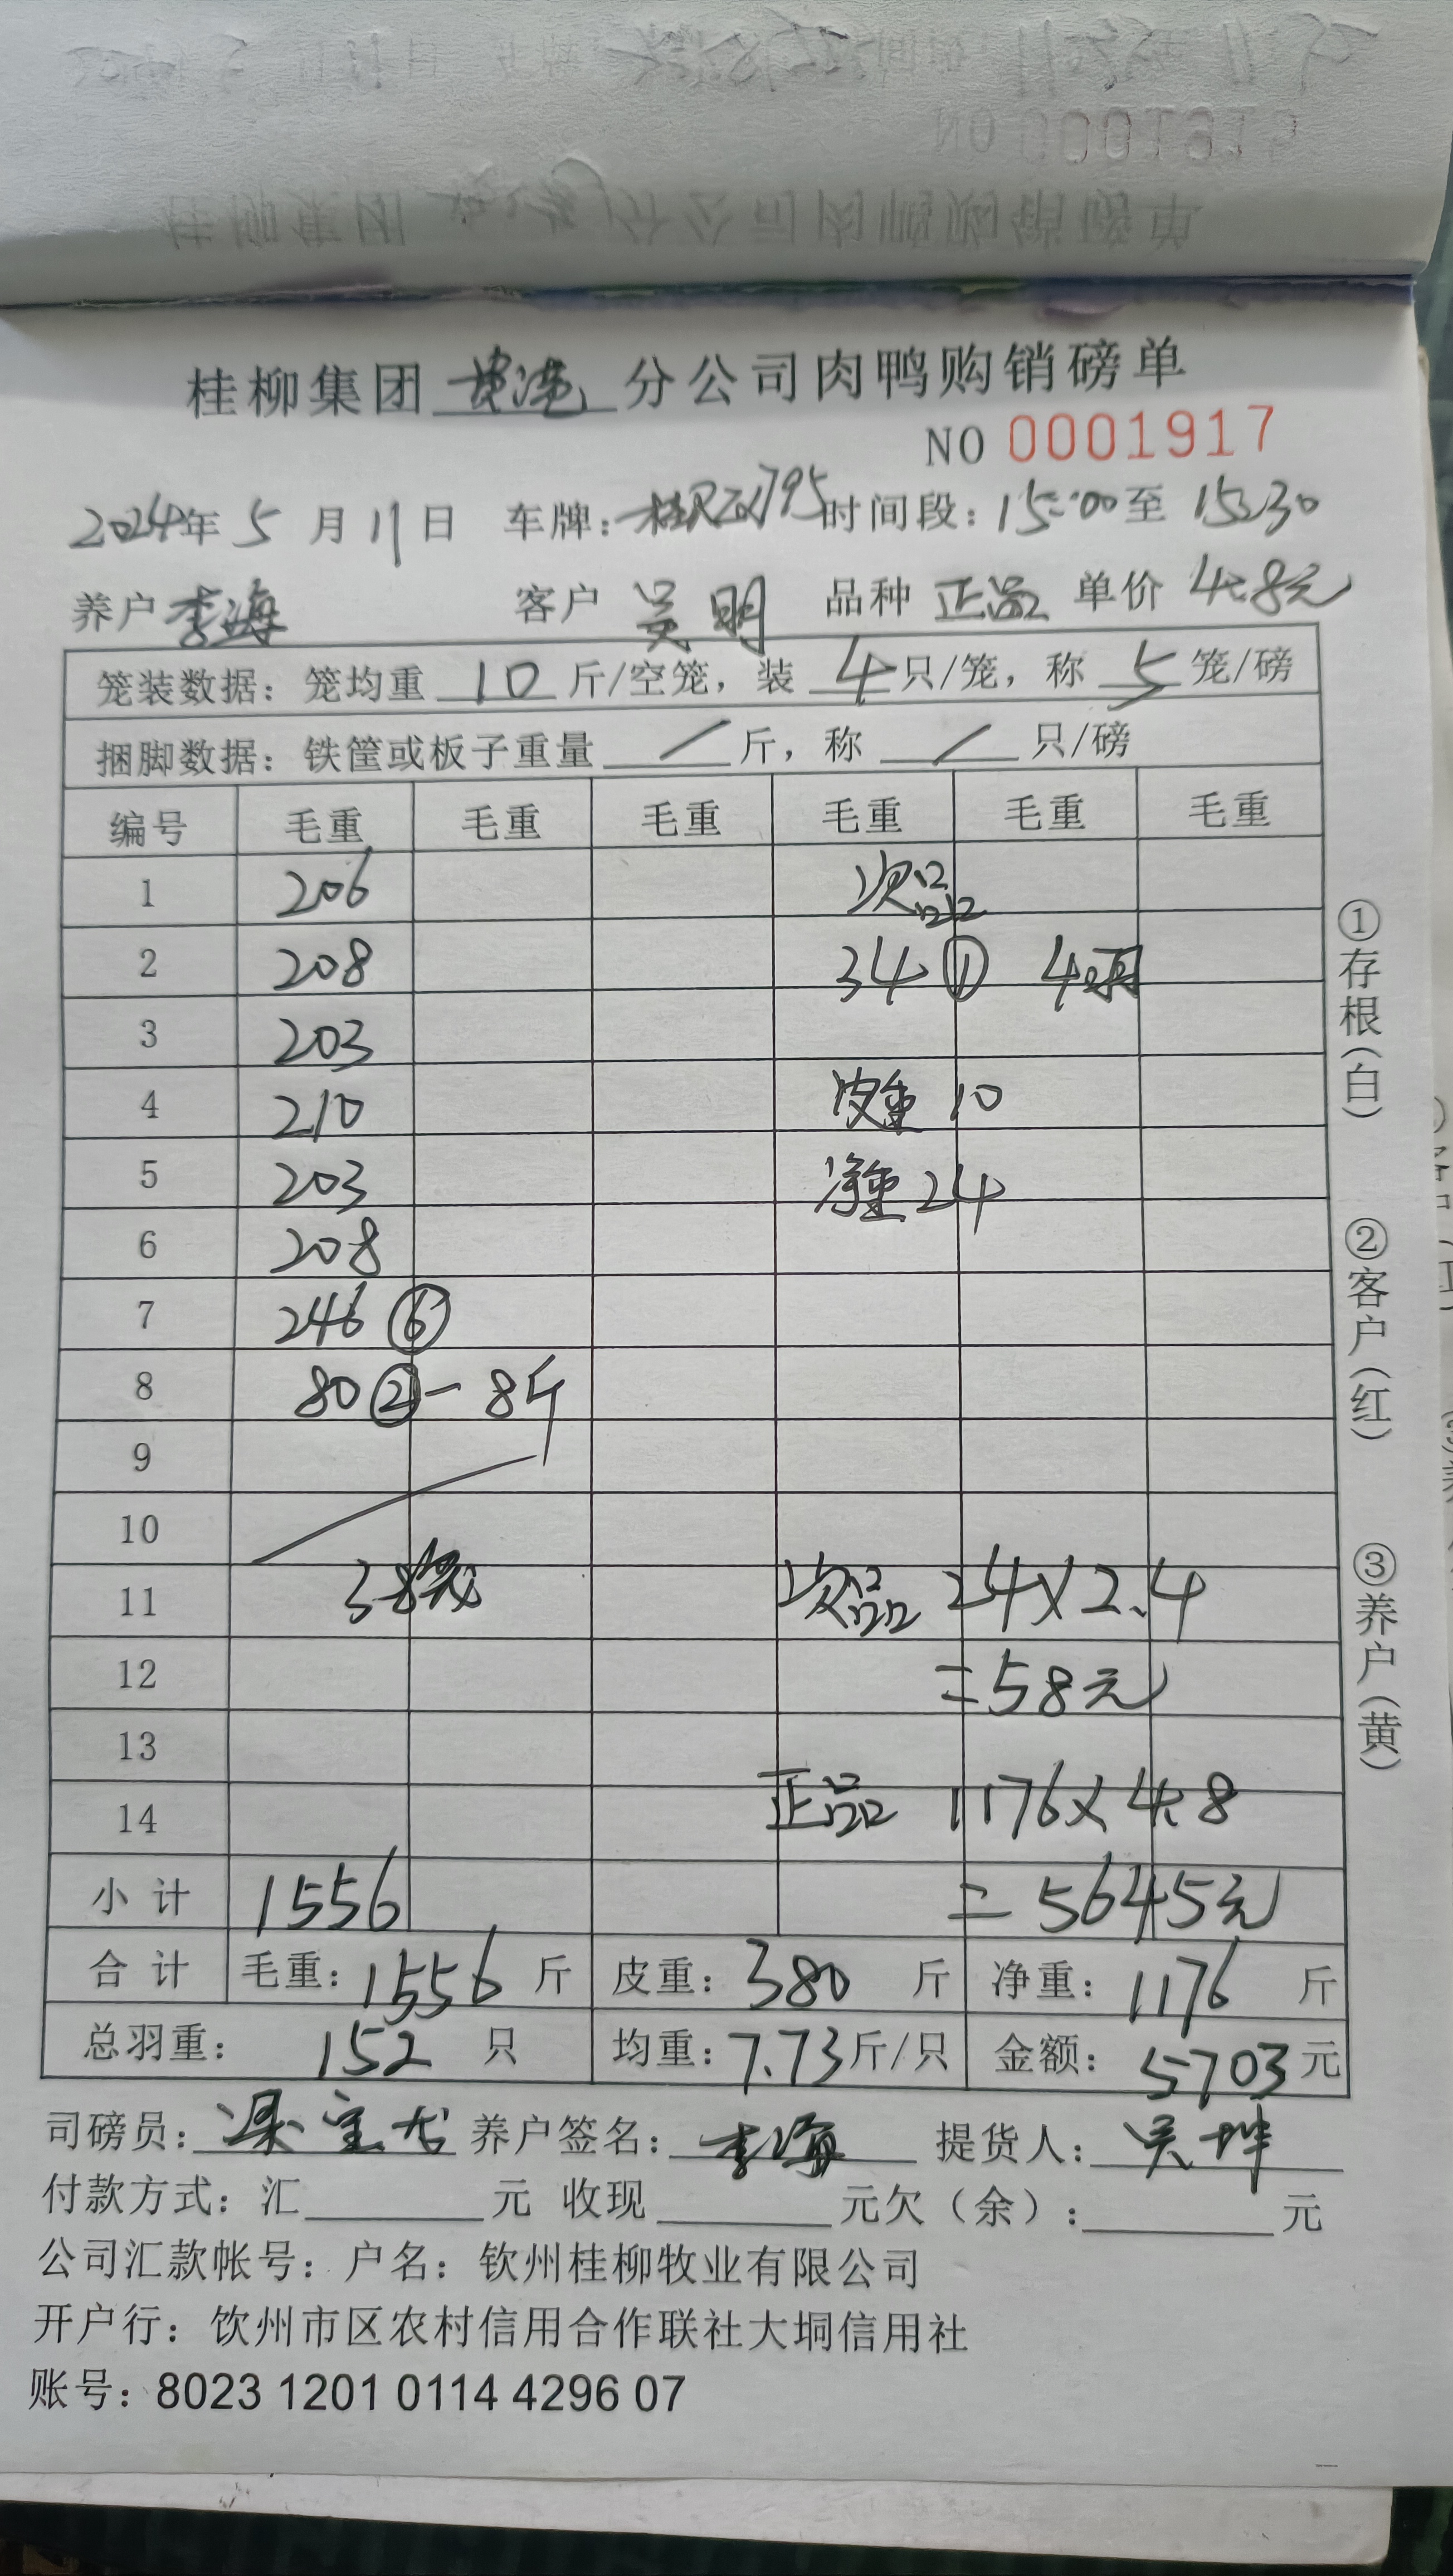 桂柳集团 贵港 分公司肉鸭购销磅单
NO 0001917
2024年 5 月 11 日 车牌: 时间段: 15:00 至 15:30
养户 李海 客户 吴明 品种 正品 单价 4.8元
笼装数据: 笼均重 10 斤/空笼, 装 4 只/笼, 称 5 笼/磅
捆脚数据: 铁筐或板子重量 / 斤, 称 / 只/磅
编号 毛重 毛重 毛重 毛重 毛重 毛重
1 206 次品
2 208 34 ① 4只
3 203
4 210 皮重 10
5 203 净重 24
6 208
7 246 ⑥
8 80 ② - 8斤
9
10
11 38笼 次品 24×2.4
12 =58元
13
14 正品 1176×4.8
小计 1556 =5645元
合计 毛重: 1556 斤 皮重: 380 斤 净重: 1176 斤
总羽重: 152 只 均重: 7.73斤/只 金额: 5703 元
司磅员: 养户签名: 李海 提货人:
付款方式: 汇 元 收现 元欠(余): 元
公司汇款帐号: 户名: 钦州桂柳牧业有限公司
开户行: 饮州市区农村信用合作联社大垌信用社
账号: 8023 1201 0114 4296 07
①存根(白)
②客户(红)
③养户(黄)